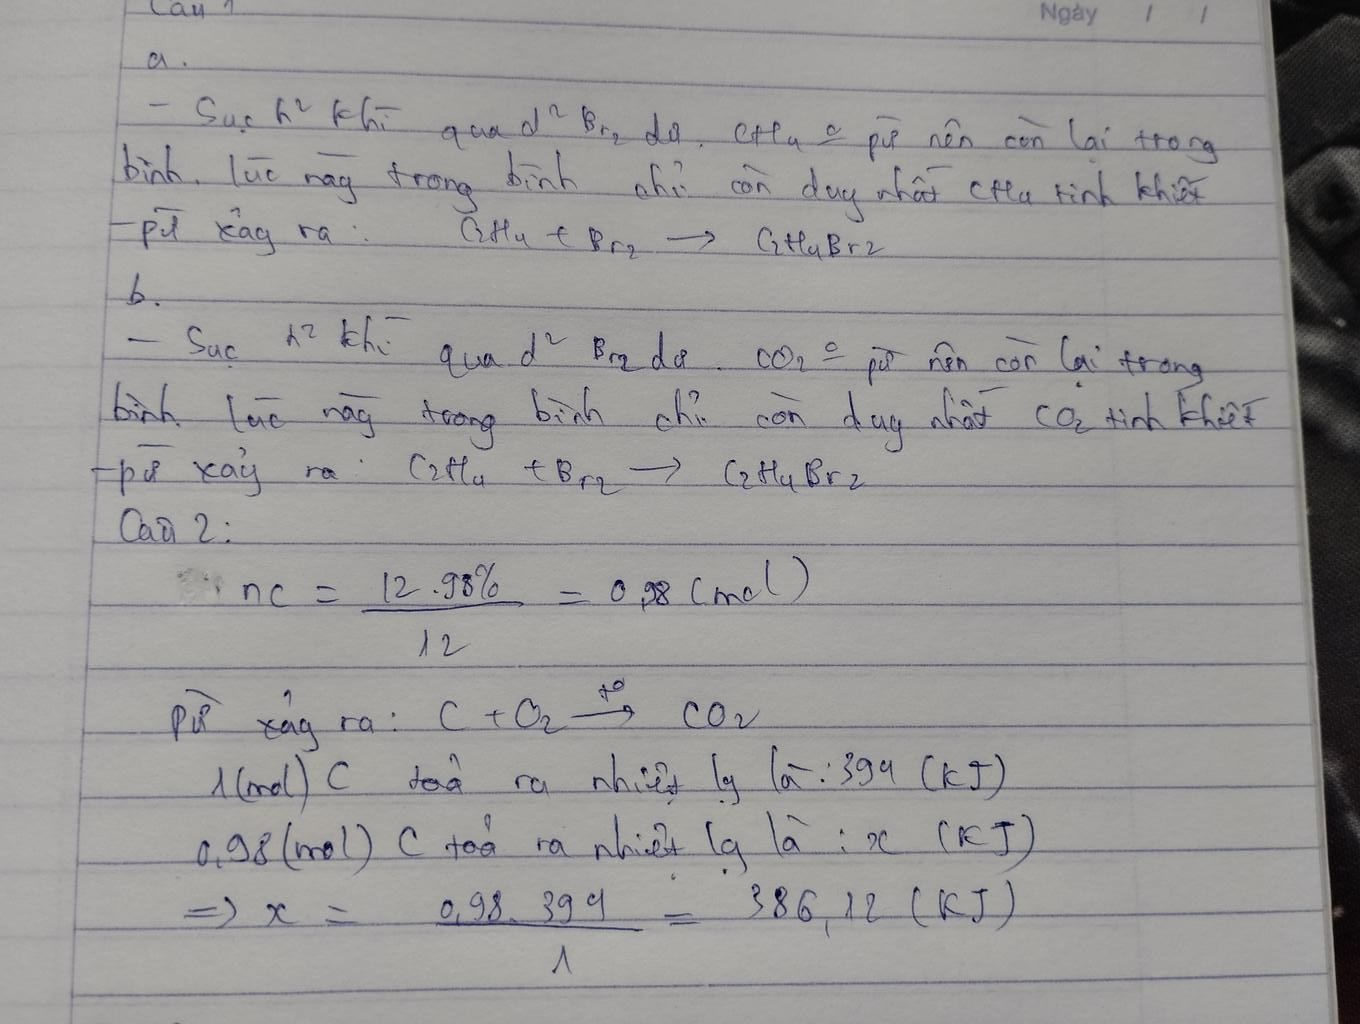 Câu 1
Ngày / /
a.
- Sục h² khí qua d² Br2 dư. CH4 o pứ nên còn lại trong
bình. lúc này trong bình chỉ còn duy nhất CH4 tinh khiết
- pứ xảy ra: C2H4 + Br2 → C2H4Br2
b.
- Sục h² khí qua d² Br2 dư. CO2 o pứ nên còn lại trong
bình. lúc này trong bình chỉ còn duy nhất CO2 tinh khiết
- pứ xảy ra: C2H4 + Br2 → C2H4Br2
Câu 2:
nC = 12.98% / 12 = 0,98 (mol)
pứ xảy ra: C + O2 t°→ CO2
1(mol) C toả ra nhiệt lg là: 394 (KJ)
0,98(mol) C toả ra nhiệt lg là: x (KJ)
=> x = 0,98.394 / 1 = 386,12 (KJ)